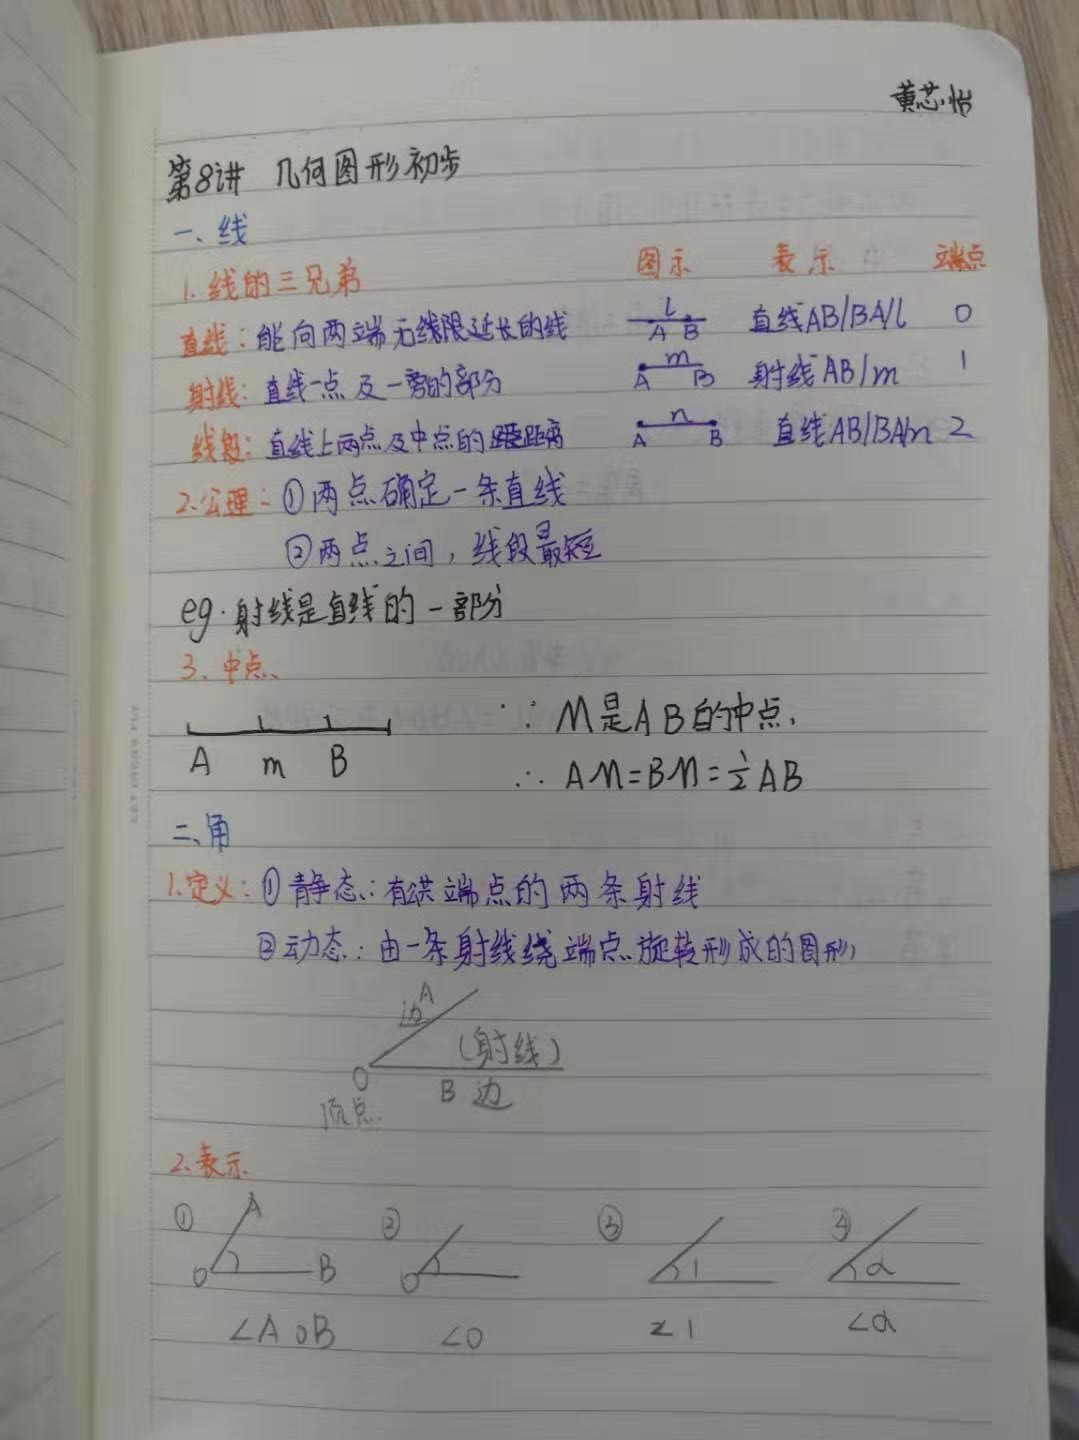 黄芯怡
第8讲 几何图形初步
一、线
1.线的三兄弟 图示 表示 端点
直线：能向两端无线限延长的线 l A B 直线AB/BA/l 0
射线：直线一点及一旁的部分 A m B 射线AB/m 1
线段：直线上两点及中点的距离 A n B 直线AB/BA/n 2
2.公理：①两点确定一条直线
②两点之间，线段最短
eg.射线是直线的一部分
3.中点、
A m B ∵ M是AB的中点，
∴ AM=BM=½AB
二、角
1.定义：①静态：有公共端点的两条射线
②动态：由一条射线绕端点旋转形成的图形
边 A
(射线)
O B 边
顶点
2.表示
① A O B ② O ③ 1 ④ α
∠AOB ∠O ∠1 ∠α